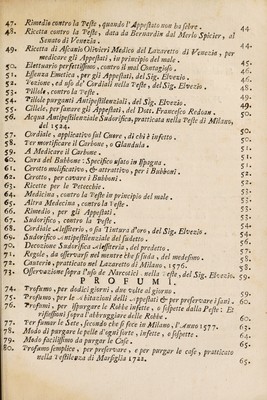 47. Rimedio contro la Peste, quando l'Appestato non ha febre. 44
48. Ricetta contro la Peste, data da Bernardin dal Merlo Spicier, al Senato di Venezia. 44
49. Ricetta di Ascanio Olivieri Medico del Lazaretto di Venezia, per medicare gli Appestati, in principio del male.
50. Elettuario perfettissimo, contro il mal Contagioso.
51. Essenza Emetica, per gli Appestati, del Sig. Elvezio.
52. Vezione, ed uso de' Cordiali nella Peste, del Sig. Elvezio.
53. Pillole, contro la Peste.
54. Pillole purganti Antipestilenziali, del Sig. Elvezio. 49.
55. Cillole, per sanare gli Appestati, del Dott. Francesco Redoan. 50.
56. Acqua Antipestilenziale Sudorifica, pratticata nella Peste di Milano, del 1524.
57. Cordiale, applicativo sul Cuore, di chi è infetto.
58. Per mortificare il Carbone, o Glandula.
59. A Medicare il Carbone.
60. Cura del Bubbone: Specifico usato in Ispagna.
61. Cerotto molificativo, & attrattivo, per i Bubboni.
62. Cerotto, per cavare i Bubboni.
63. Ricette per le Petecchie.
64. Medicina, contro la Peste in principio del male.
65. Altra Medecina, contro la Peste.
66. Rimedio, per gli Appestati.
67. Sudorifico, contro la Peste.
68. Cordiale Alessiterio, o sia Tintura d'oro, del Sig. Elvezio
69. Sudorifico Antipestilenziale del sudetto.
70. Decozione Sudorifica Alessiteria, del predetto.
71. Regole, da osservarsi nel mentre che si suda, del medesimo.
72. Cauterio, pratticato nel Lazaretto di Milano, 1576. 58.
73. Osservazione sopra l'uso de Narcotici nella Peste, del Sig. Elvezio. 59.
PROFUMI.
74. Profumo, per dodici giorni, due volte al giorno. 59.
75. Profumo, per le Abitazioni degli Appestati & per preservare i sani. 60.
76. Profumi, per ispurgare le Robbe infette, o sospette dalla Peste: Et riflessioni sopra l'abbruggiare delle Robbe.
77. Per fumar le Sete, secondo che si fece in Milano, l'Anno 1577. 63.
78. Modo di purgare le pelle d'ogni sorte, infette, o sospette. 64.
79. Modo facilissimo da purgar le Case. 65.
80. Profumo semplice, per preservare, e per purgar le case, pratticato nella Pestilenza di Marsiglia 1721. 65.